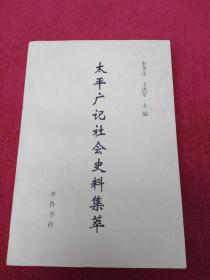 太平广记社会史料集萃
王洪军 主编
齐鲁书社